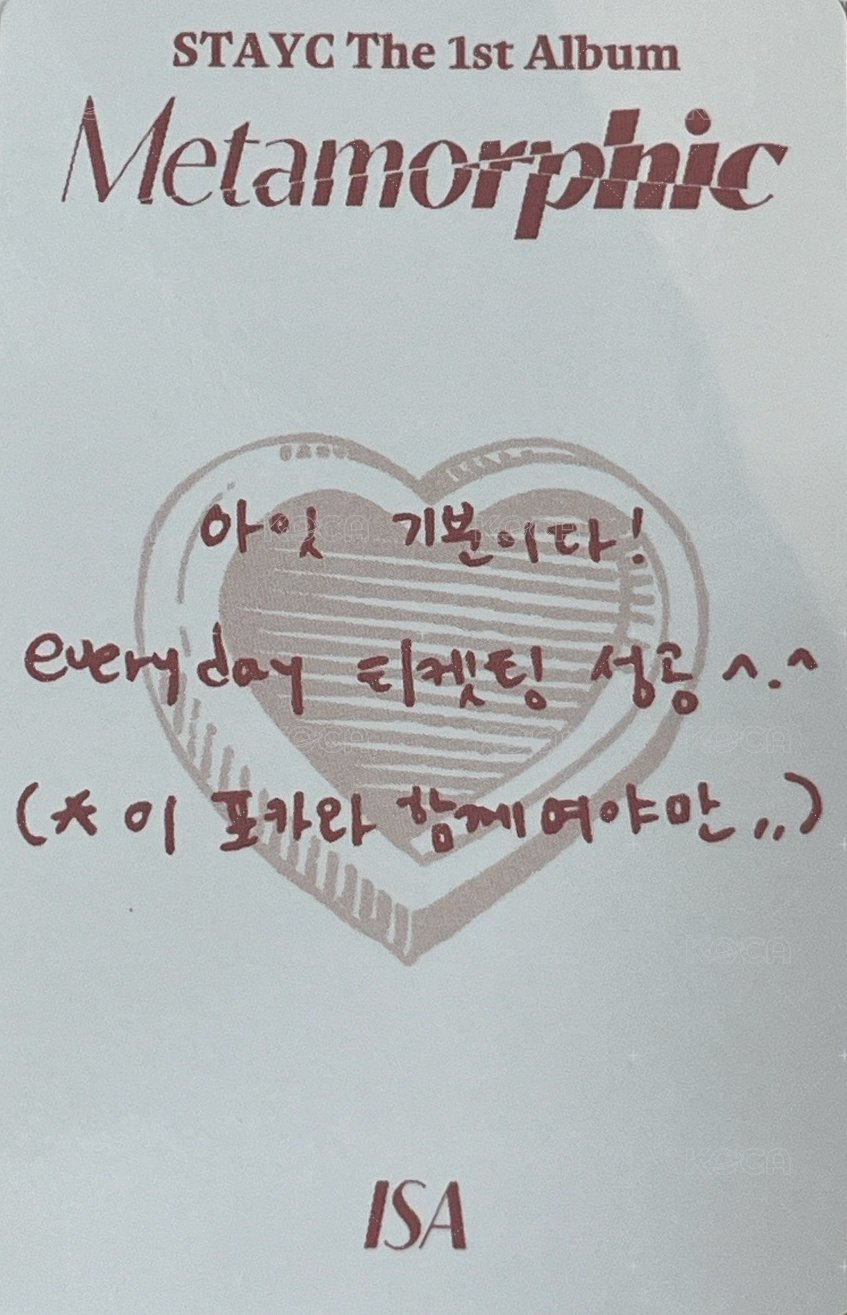 STAYC The 1st Album
Metamorphic
아잇 기본이다!
everyday 티켓팅 성공 ^.^
(* 이 포카와 함께여야만,,)
ISA